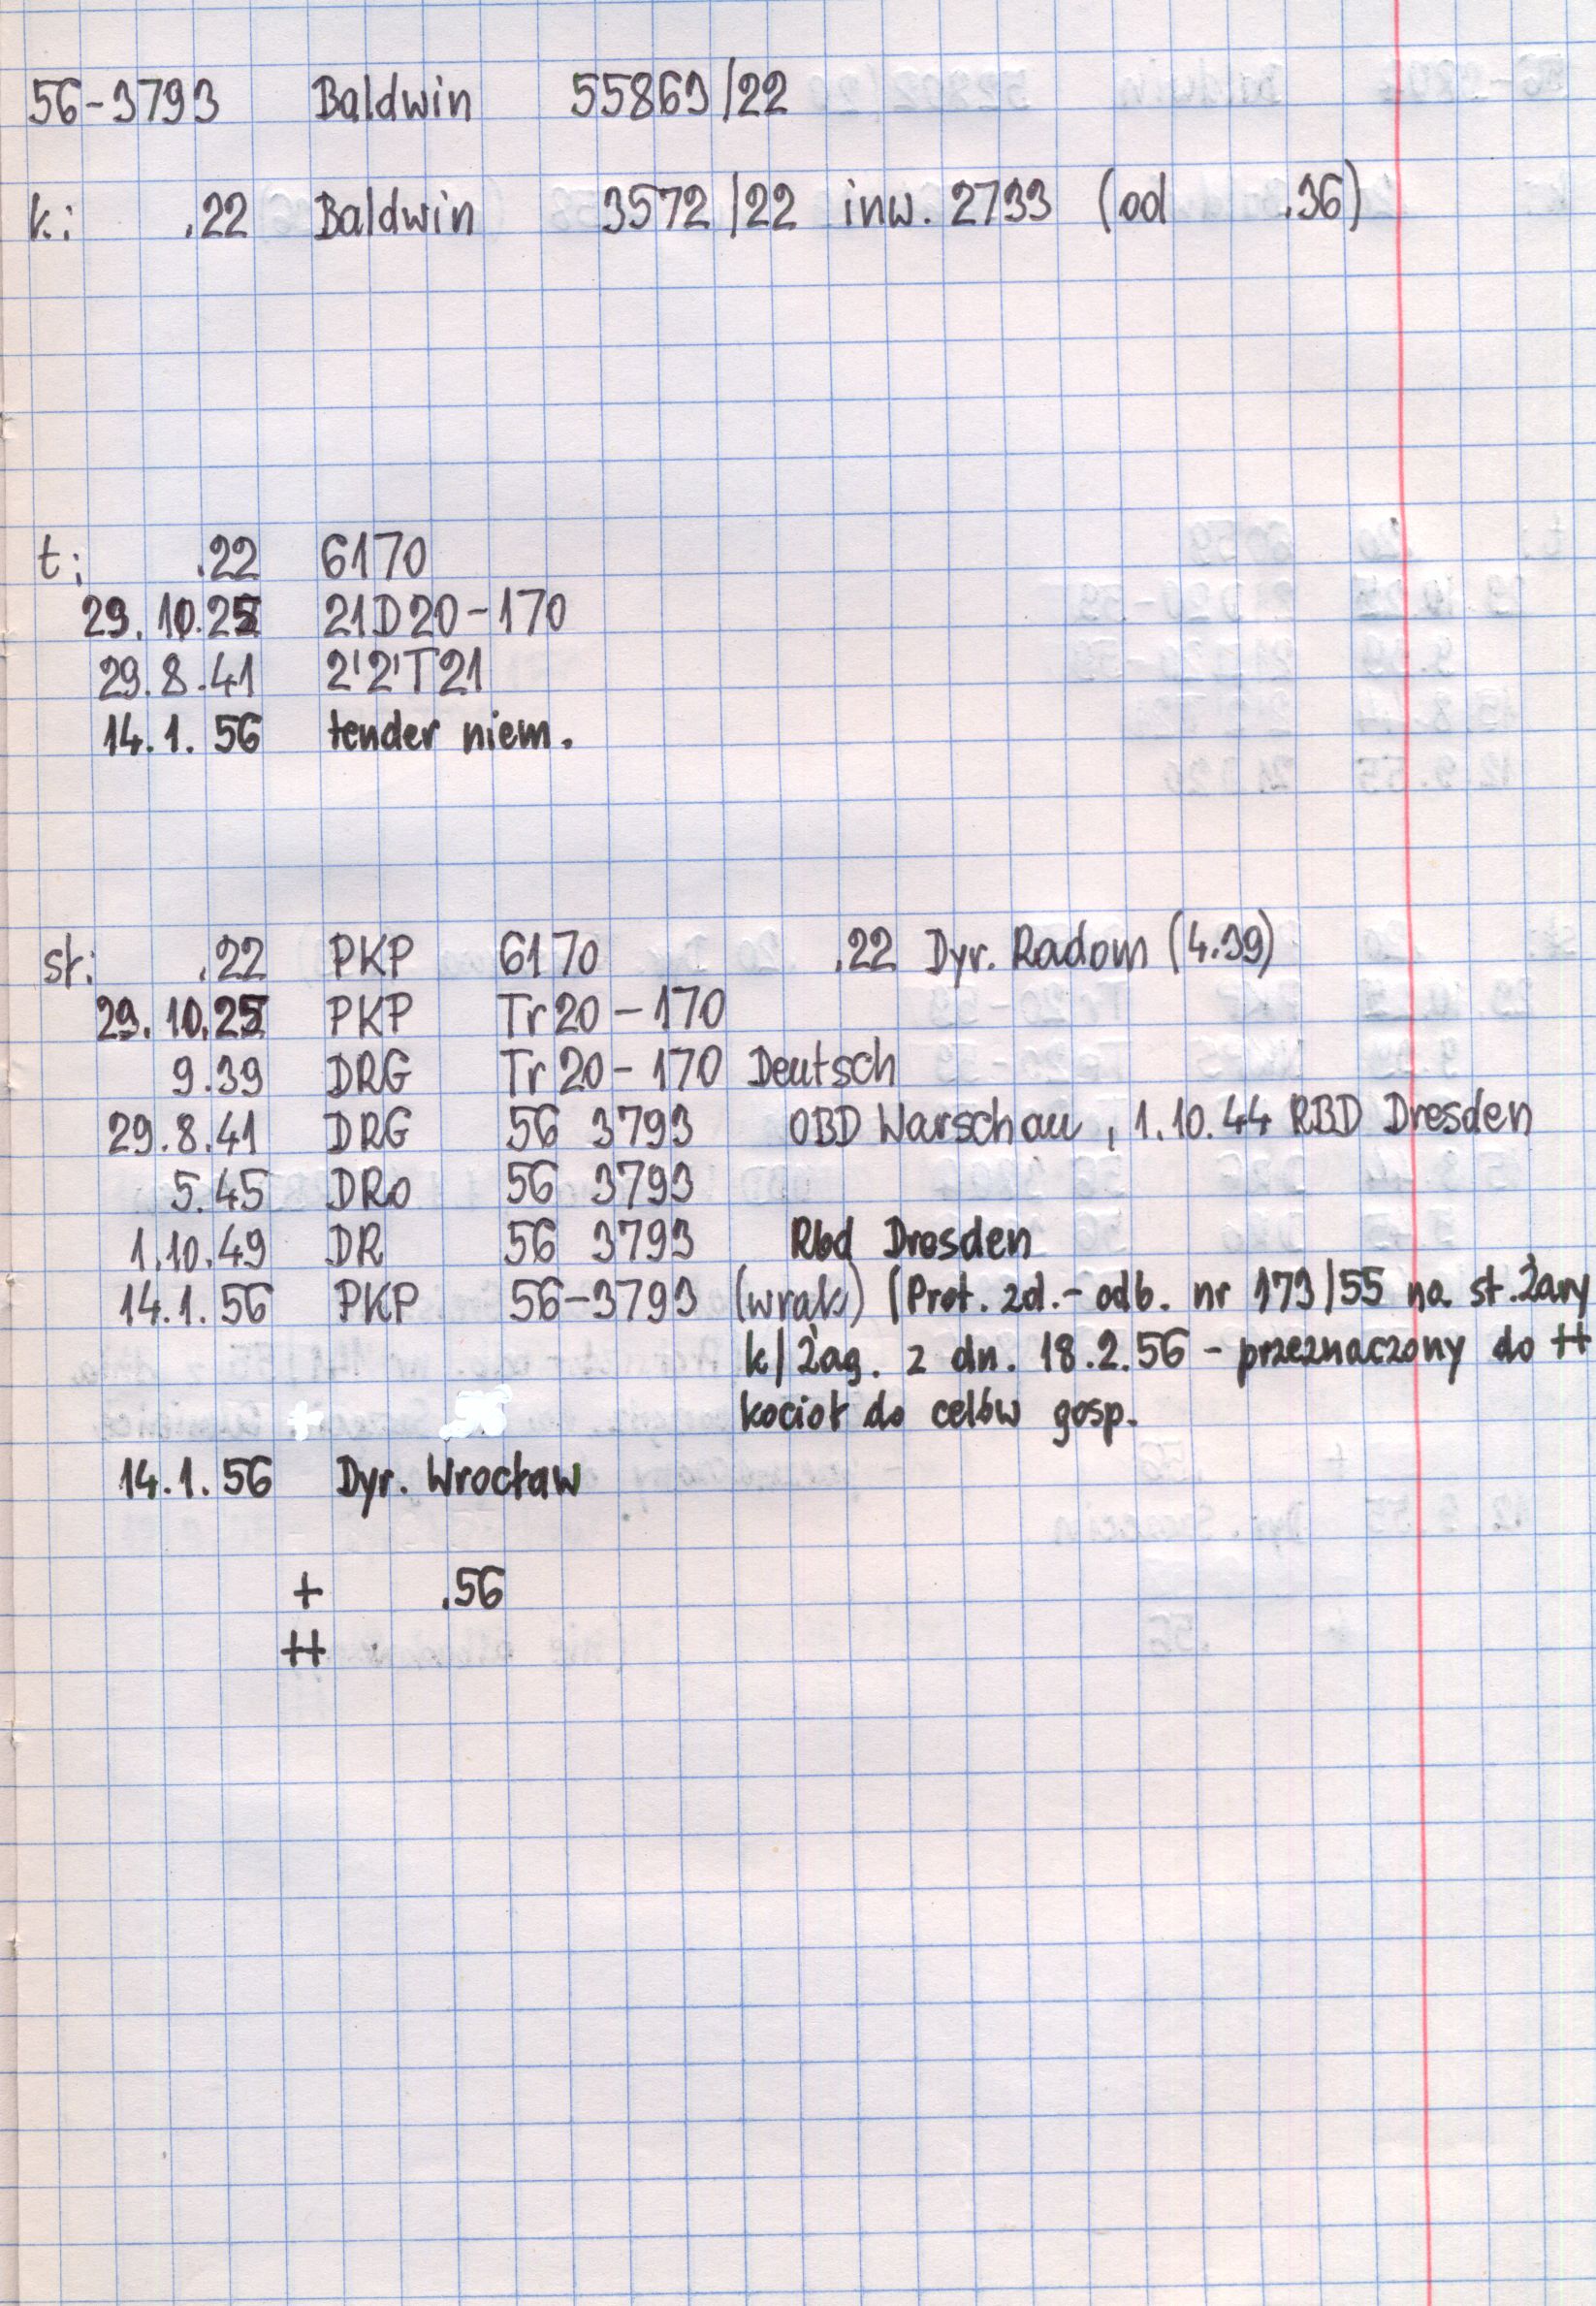 56-3793 Baldwin 55863/22
k: .22 Baldwin 3572/22 inw. 2733 (od .36)
t: .22 6170
29.10.25 21D20-170
29.8.41 2'2'T21
14.1.56 tender niem.
st: .22 PKP 6170 .22 Dyr. Radom (4.39)
29.10.25 PKP Tr20-170
9.39 DRG Tr20-170 Deutsch
29.8.41 DRG 56 3793 OBD Warschau, 1.10.44 RBD Dresden
5.45 DRo 56 3793
1.10.49 DR 56 3793 Rbd Dresden
14.1.56 PKP 56-3793 (wrak) (Prot. zd.-odb. nr 173/55 na st. Żary
k/Żag. z dn. 18.2.56 - przeznaczony do ++
kocioł do celów gosp.
14.1.56 Dyr. Wrocław
+ .56
++